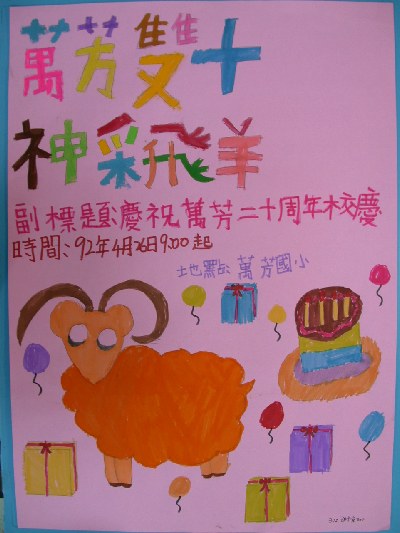 萬芳雙十
神彩飛羊
副標題:慶祝萬芳二十周年校慶
時間:92年4月26日9:00起
地點:萬芳國小